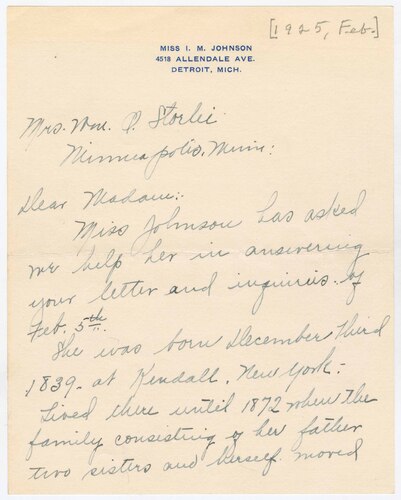 [1925, Feb.]
MISS I. M. JOHNSON
4518 ALLENDALE AVE.
DETROIT, MICH.
Mrs. Wm. O. Storlie
Minneapolis, Minn:
Dear Madam:
Miss Johnson has asked
me help her in answering
your letter and inquiries of
Feb. 5th.
She was born December third
1839 - at Kendall, New York:
Lived there until 1872 when the
family consisting of her father
two sisters and herself moved